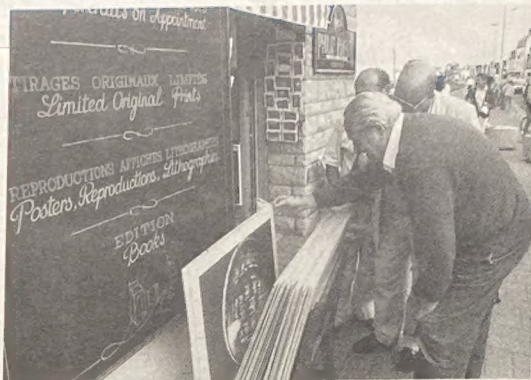 on Appointment
TIRAGES ORIGINAUX LIMITÉS
Limited Original Prints
REPRODUCTIONS AFFICHES LITHOGRAPHIES
Posters, Reproductions, Lithographies
EDITION
Books